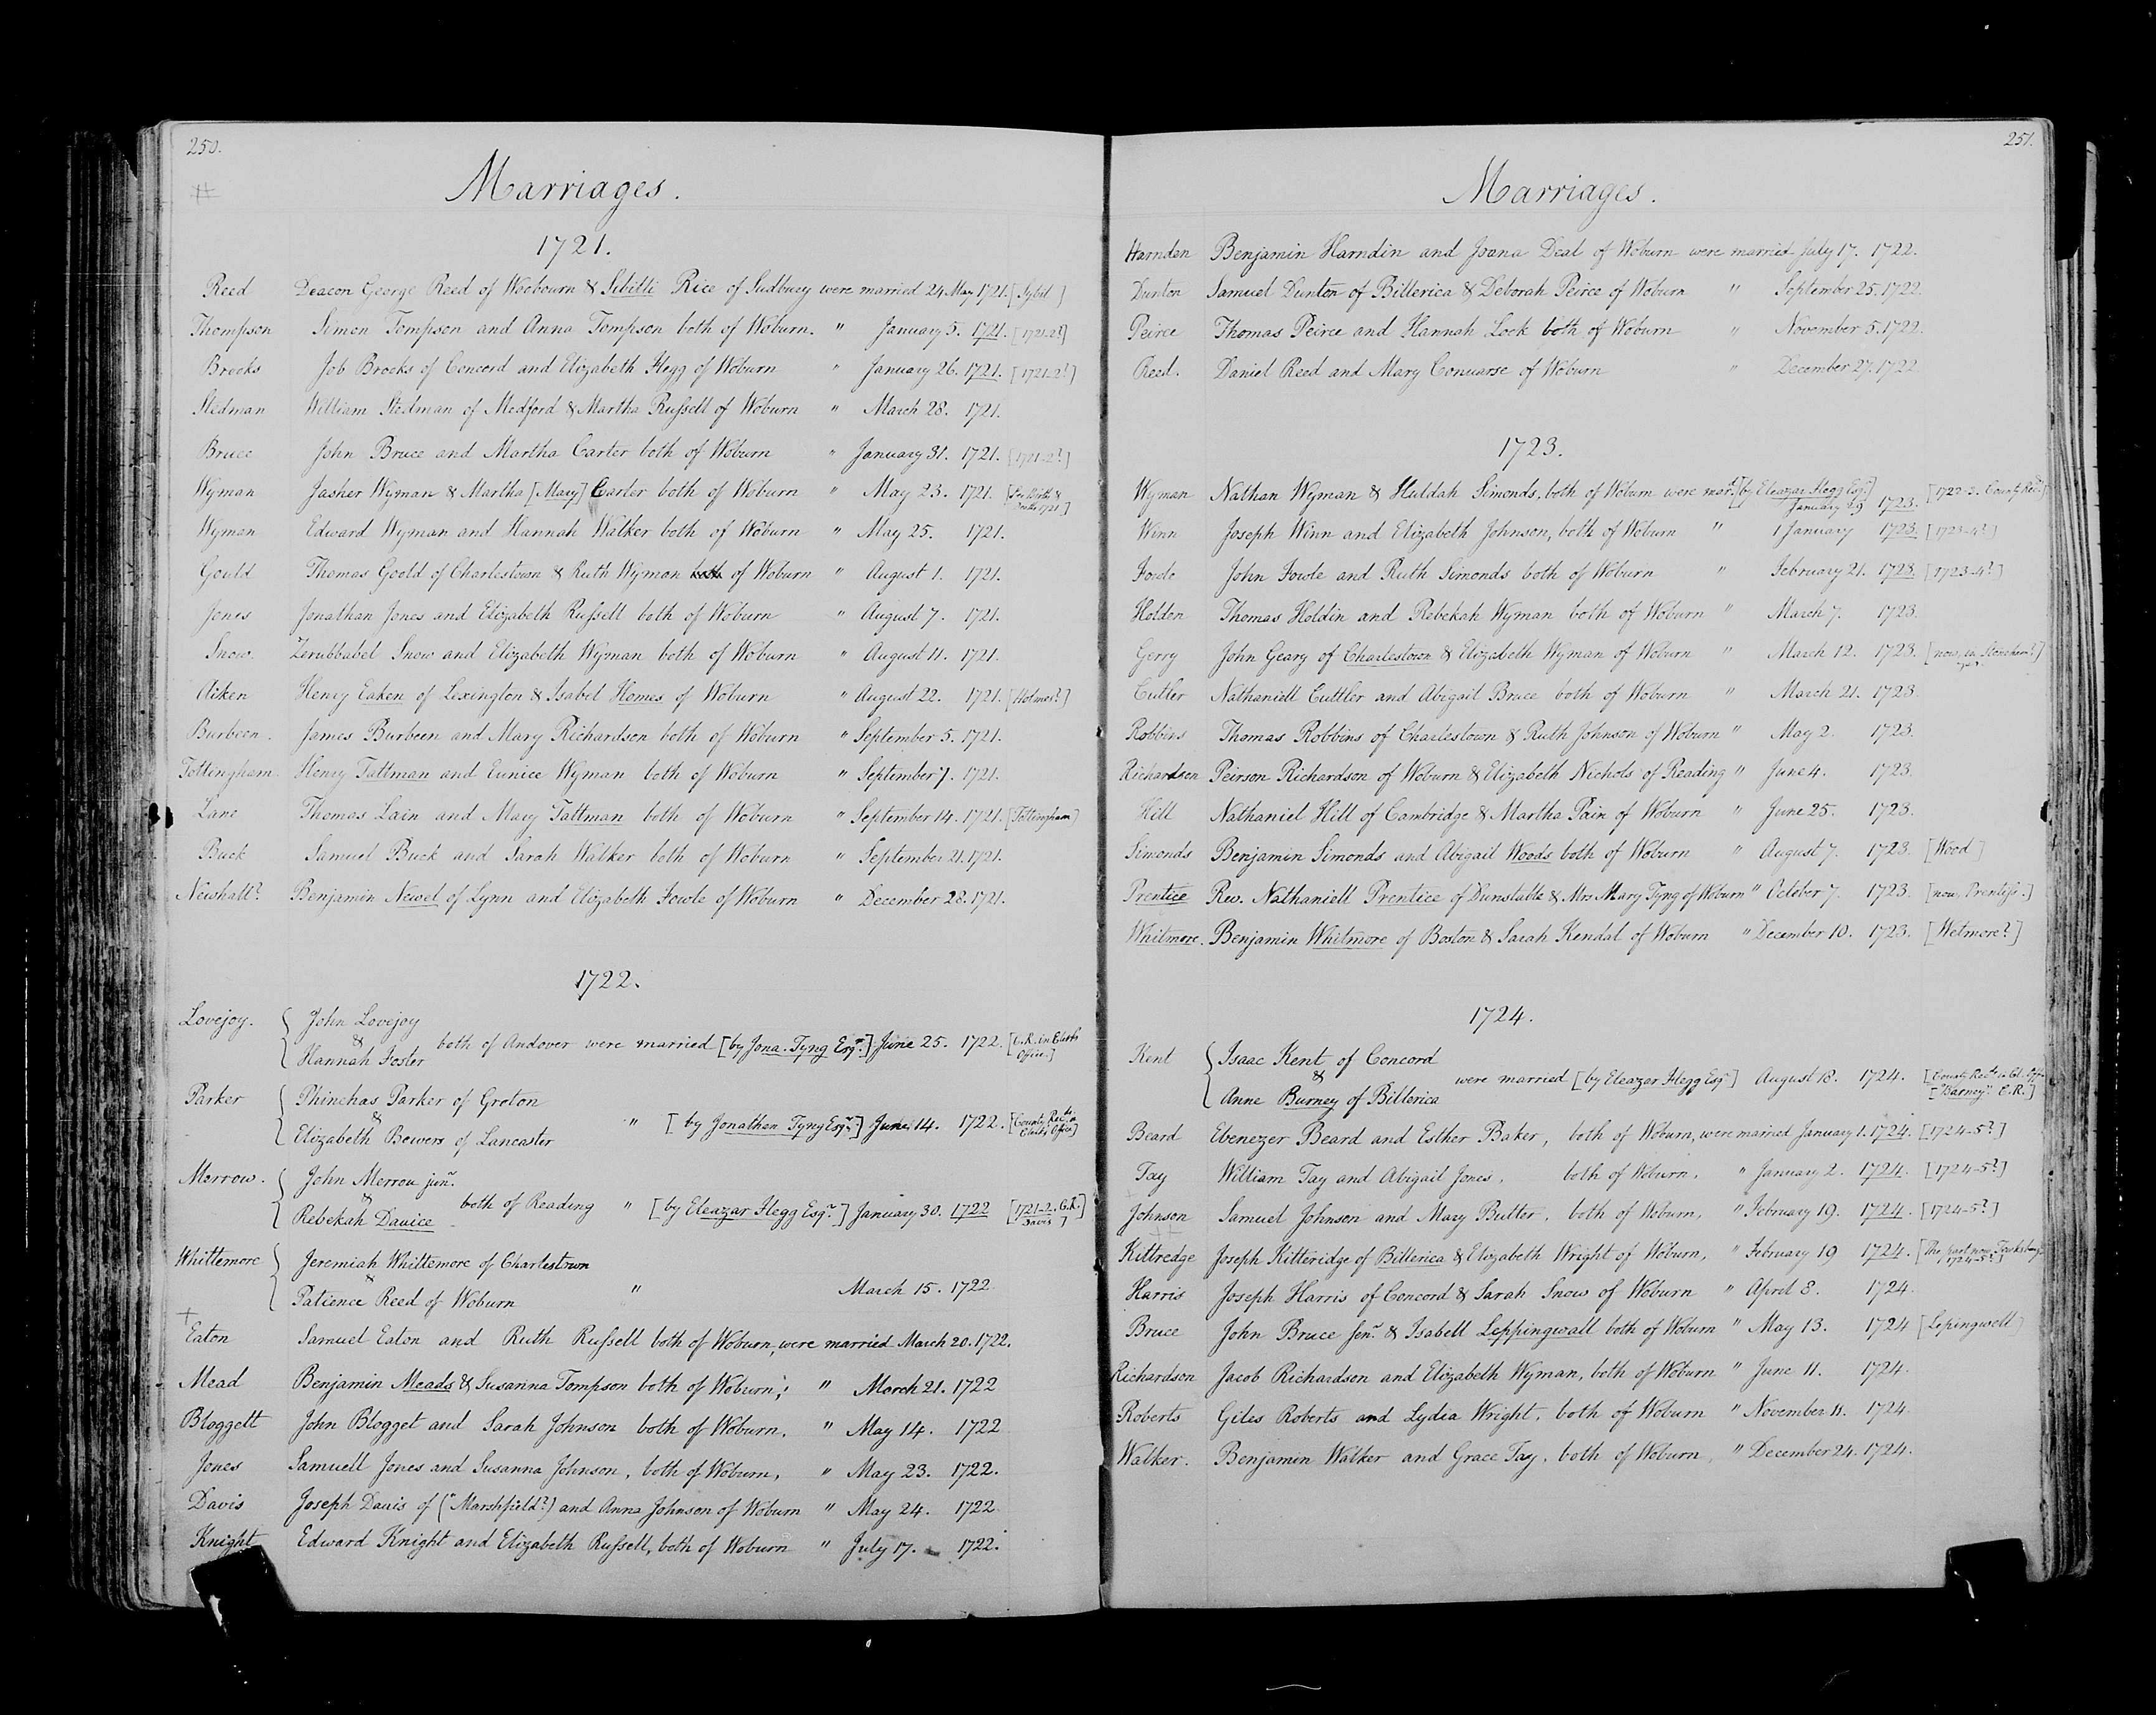 250.
Marriages.
1721.
Reed Deacon George Reed of Woobourn & Sibilli Rice of Sudbury were married 24 May 1721. [Sybil]
Thompson Simon Tompson and Anna Tompson both of Woburn. " January 5. 1721. [1721-2?]
Brooks Job Brooks of Concord and Elizabeth Hegg of Woburn " January 26. 1721. [1721-2?]
Stedman William Stedman of Medford & Martha Russell of Woburn " March 28. 1721.
Bruce John Bruce and Martha Carter both of Woburn " January 31. 1721. [1721-2?]
Wyman Jasher Wyman & Martha [Mary] Carter both of Woburn " May 23. 1721. [See Birth & Death 1721]
Wyman Edward Wyman and Hannah Walker both of Woburn " May 25. 1721.
Gould Thomas Goold of Charlestown & Ruth Wyman both of Woburn " August 1. 1721.
Jones Jonathan Jones and Elizabeth Russell both of Woburn " August 7. 1721.
Snow. Zerubbabel Snow and Elizabeth Wyman both of Woburn " August 11. 1721.
Aiken Henry Eaken of Lexington & Isabel Homes of Woburn " August 22. 1721. [Holmes?]
Burbeen. James Burbeen and Mary Richardson both of Woburn " September 5. 1721.
Tottingham. Henry Tattman and Eunice Wyman both of Woburn " September 7. 1721.
Lane Thomas Lain and Mary Tattman both of Woburn " September 14. 1721. [Tottingham]
Buck Samuel Buck and Sarah Walker both of Woburn " September 21. 1721.
Newhall? Benjamin Newel of Lynn and Elizabeth Fowle of Woburn " December 28. 1721.
1722.
Lovejoy. { John Lovejoy
& both of Andover were married [by Jona. Tyng Esqr.] June 25. 1722. [C.R. in Clerks Office.]
Hannah Foster
Parker { Phinehas Parker of Groton
& " [by Jonathan Tyng Esqr.] June 14. 1722. [County Recds. in Clerks Office]
Elizabeth Bowers of Lancaster
Merrow. { John Merrow junr.
& both of Reading " [by Eleazar Flegg Esqr.] January 30. 1722 [1721-2. C.R. Davis]
Rebekah Dauice
Whittemore { Jeremiah Whittemore of Charlestown
& " March 15. 1722
Patience Reed of Woburn
Eaton Samuel Eaton and Ruth Russell both of Woburn, were married March 20. 1722.
Mead Benjamin Meads & Susanna Tompson both of Woburn; " March 21. 1722
Bloggett John Blogget and Sarah Johnson both of Woburn, " May 14. 1722
Jones Samuell Jones and Susanna Johnson, both of Woburn, " May 23. 1722.
Davis Joseph Dauis of ("Marshfield?) and Anna Johnson of Woburn " May 24. 1722.
Knight Edward Knight and Elizabeth Russell, both of Woburn " July 17. 1722.
251.
Marriages.
Harnden Benjamin Harndin and Joana Deal of Woburn were married July 17. 1722.
Dunton Samuel Dunton of Billerica & Deborah Peirce of Woburn " September 25. 1722.
Peirce Thomas Peirce and Hannah Lock both of Woburn " November 5. 1722.
Reed. Daniel Reed and Mary Conuarse of Woburn " December 27. 1722
1723.
Wyman Nathan Wyman & Huldah Simonds, both of Woburn were mard. [by Eleazar Flegg Esqr.] January 29 1723. [1722-3. County Rec.]
Winn Joseph Winn and Elizabeth Johnson, both of Woburn " 1 January 1723. [1723-4?]
Fowle John Fowle and Ruth Simonds both of Woburn " February 21. 1723. [1723-4?]
Holden Thomas Holdin and Rebekah Wyman both of Woburn " March 7. 1723.
Gerry John Geary of Charlestown & Elizabeth Wyman of Woburn " March 12. 1723. [now, in Stoneham?]
Cutler Nathaniell Cuttler and Abigail Bruce both of Woburn " March 21. 1723.
Robbins Thomas Robbins of Charlestown & Ruth Johnson of Woburn " May 2. 1723.
Richardson Peirson Richardson of Woburn & Elizabeth Nichols of Reading " June 4. 1723.
Hill Nathaniel Hill of Cambridge & Martha Pain of Woburn " June 25. 1723.
Simonds Benjamin Simonds and Abigail Woods both of Woburn " August 7. 1723. [Wood]
Prentice Rev. Nathaniell Prentice of Dunstable & Mrs Mary Tyng of Woburn " October 7. 1723. [now, Prentiss.]
Whitmore. Benjamin Whitmore of Boston & Sarah Kendal of Woburn " December 10. 1723. [Wetmore?]
1724.
Kent { Isaac Kent of Concord
& were married [by Eleazar Flegg Esqr.] August 18. 1724. ["Barney" C.R.]
Anne Burney of Billerica
Beard Ebenezer Beard and Esther Baker, both of Woburn, were married January 1. 1724. [1724-5?]
Tay William Tay and Abigail Jones, both of Woburn, " January 2. 1724. [1724-5?]
Johnson Samuel Johnson and Mary Butter, both of Woburn, " February 19. 1724. [1724-5?]
Kittredge Joseph Kitteridge of Billerica & Elizabeth Wright of Woburn, " February 19 1724. [The part now Tewksbury 1724-5?]
Harris Joseph Harris of Concord & Sarah Snow of Woburn " April 8. 1724.
Bruce John Bruce senr. & Isabell Leppingwall both of Woburn " May 13. 1724 [Lepingwell]
Richardson Jacob Richardson and Elizabeth Wyman, both of Woburn " June 11. 1724.
Roberts Giles Roberts and Lydia Wright, both of Woburn " November 11. 1724.
Walker. Benjamin Walker and Grace Tay, both of Woburn, " December 24. 1724.